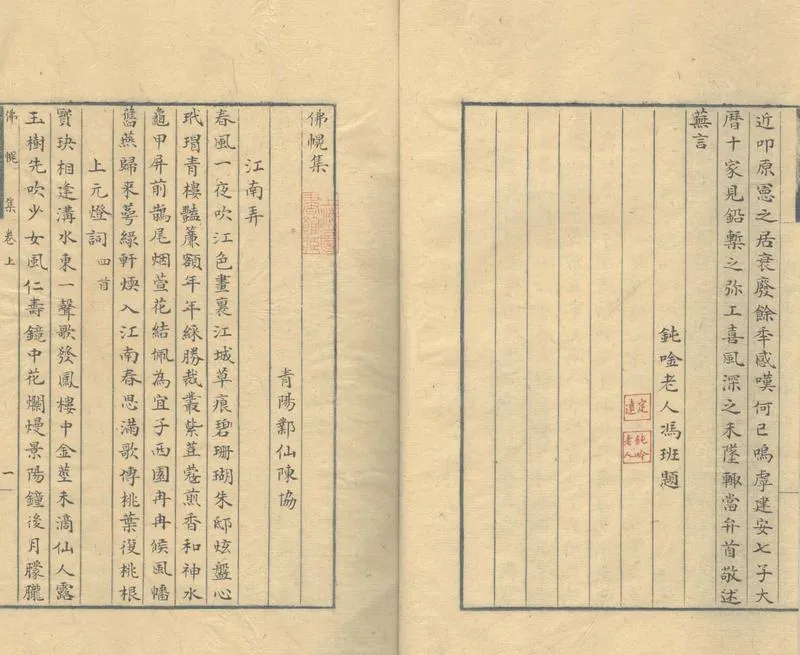 近叩原㤙之居衰廢餘秊感嘆何已嗚虖建安七子大
曆十家見鉛槧之弥工喜風深之未墜輙當弁首敬述
蕪言
鈍唫老人馮班題
定遠
鈍吟老人
佛幌集
青陽鄴仙陳協
江南弄
春風一夜吹江色畫裏江城草痕碧珊瑚朱邸炫盤心
玳瑁青樓豔簾額年年綵勝裁叢紫荳蔻煎香和神水
龜甲屏前鵲尾烟萱花結佩為宜子西園冉冉候風幡
舊燕歸来蕚綠軒煗入江南春思滿歌傳桃葉復桃根
上元燈詞四首
寳玦相逢溝水東一聲歌發鳳樓中金莖未滴仙人露
玉樹先吹少女風仁壽鏡中花爛熳景陽鐘後月朦朧
佛幌集卷上
一